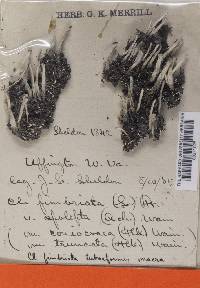 HERB. G. K. MERRILL
Sheldon 1842
Uffington W. Va.
Leg. J. L. Sheldon
Cl. fimbriata (L) Fr.
v. apolepta (Ach.) Wain
(m. coniocraea (Flk) Wain.)
(m. truncata (Flk) Wain.)
Cl fimbriata tubaeformis macra